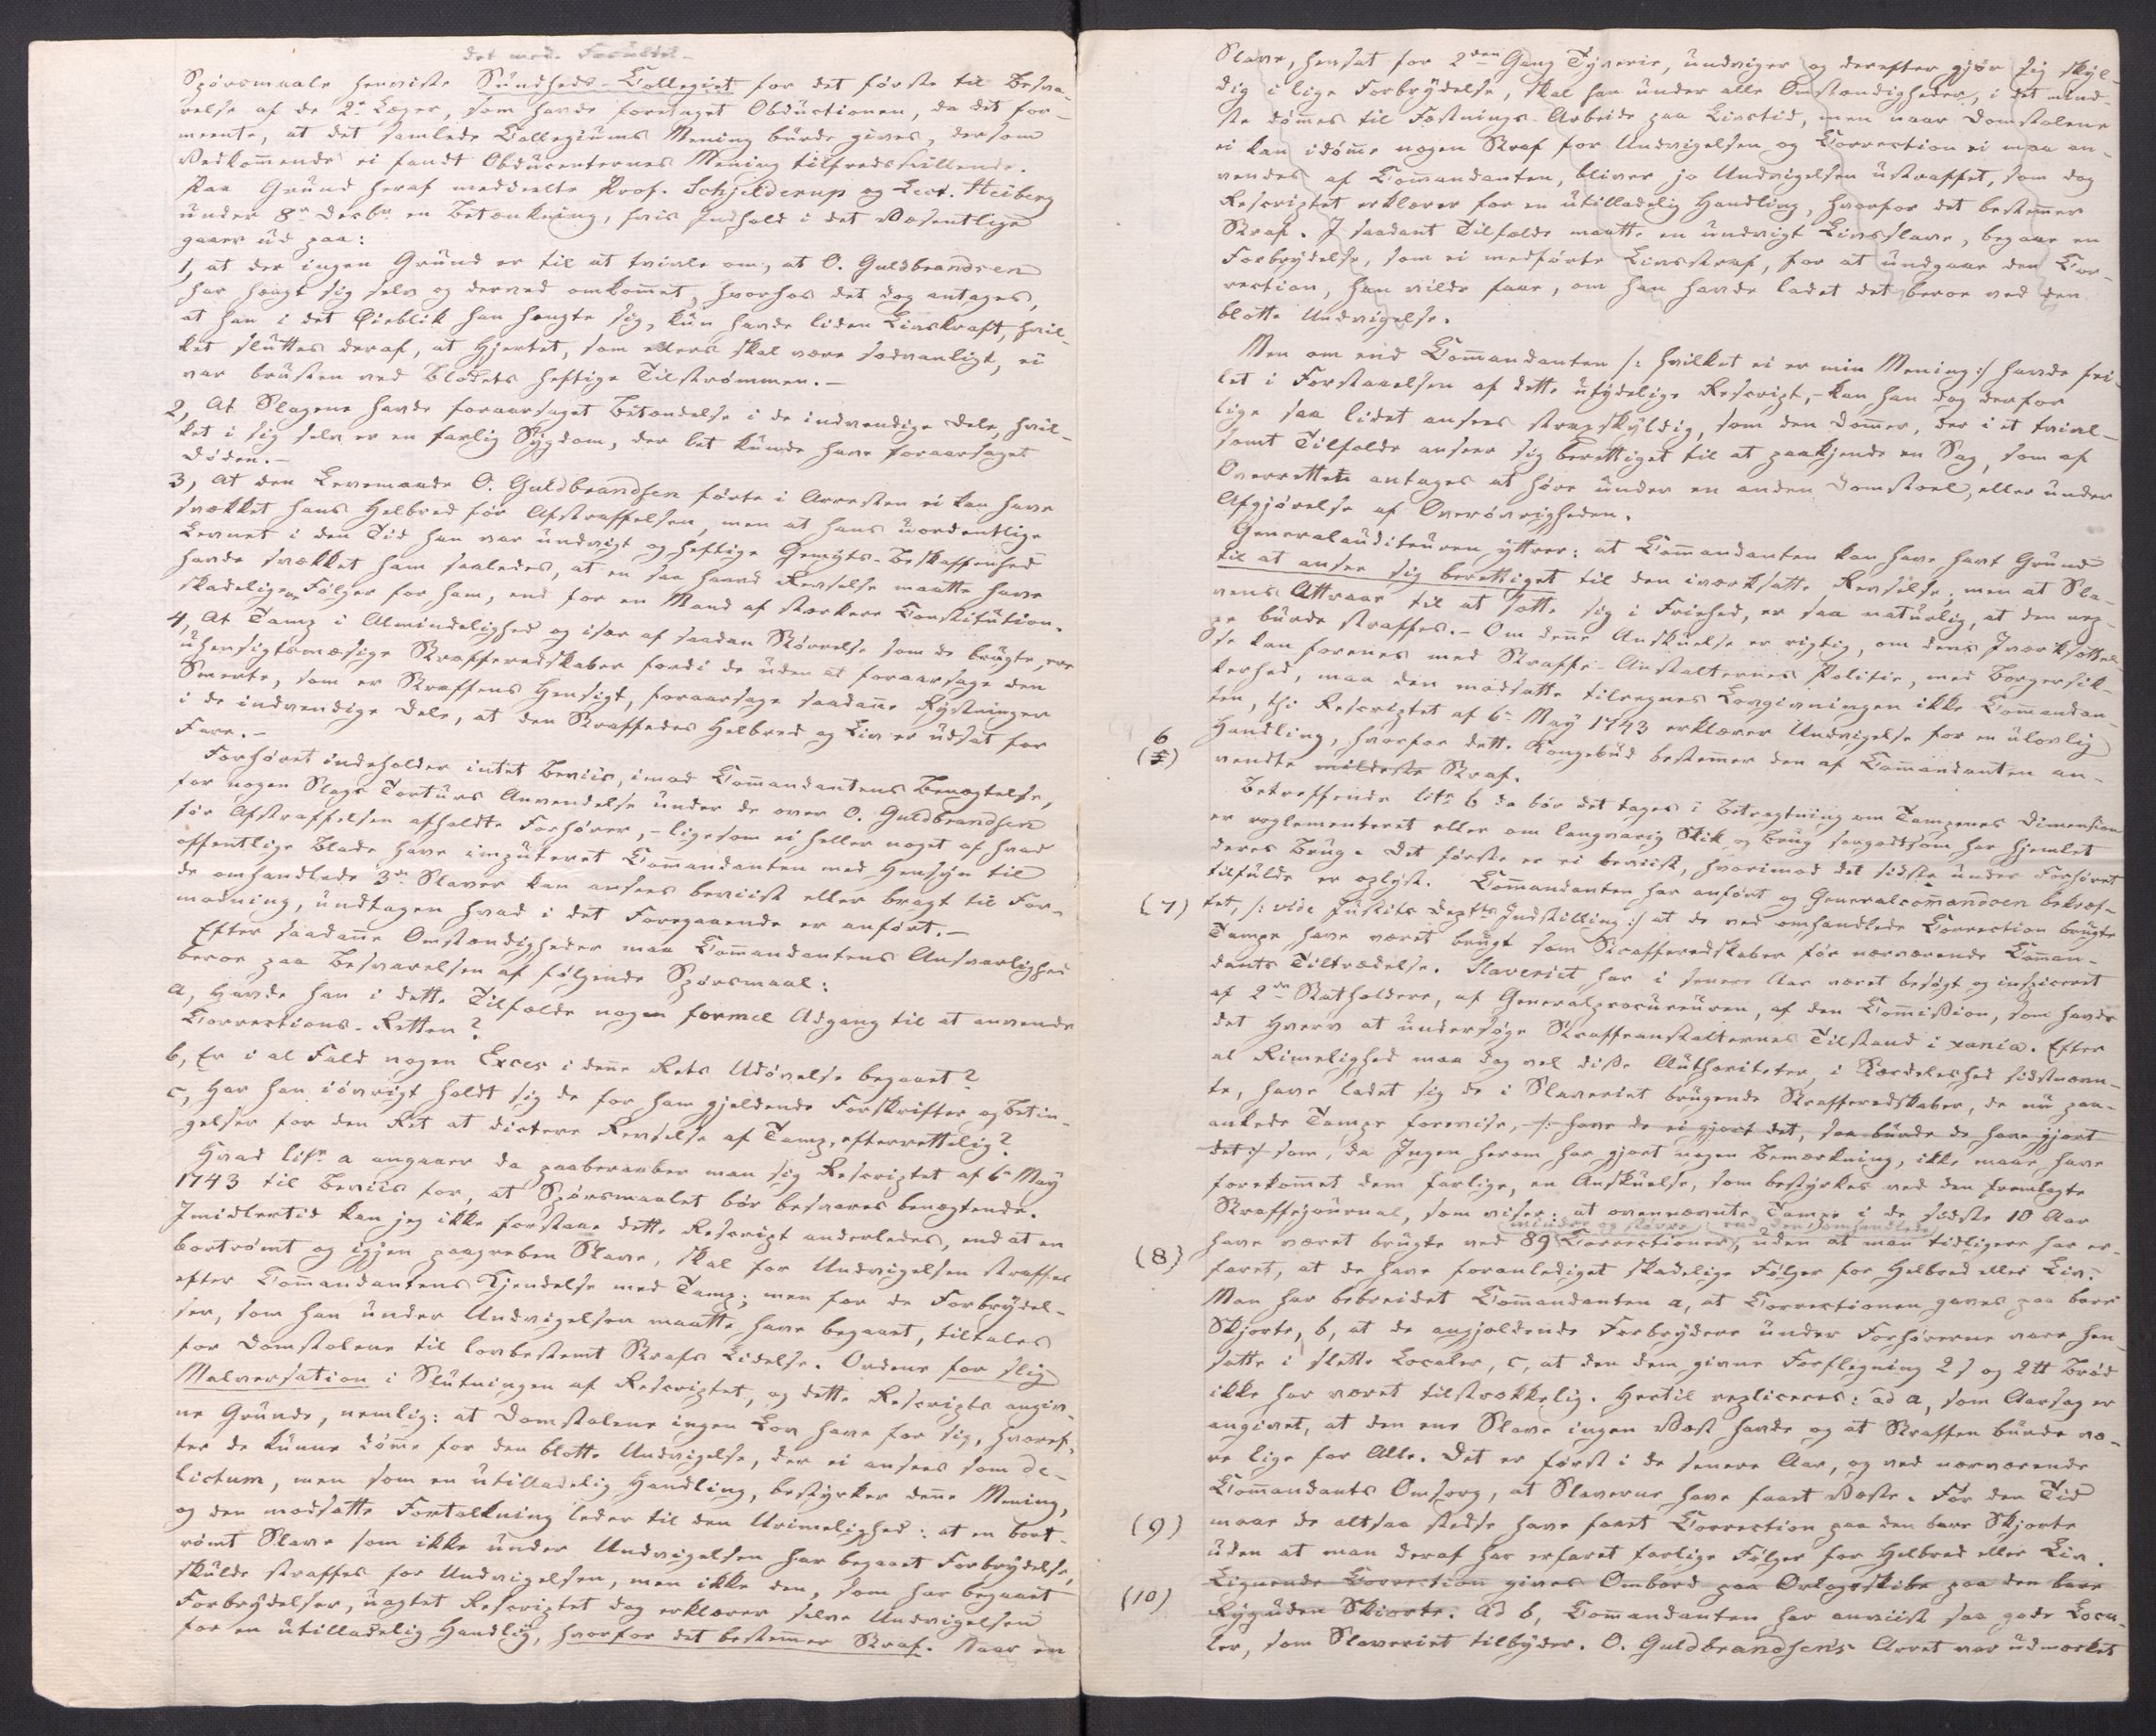 det med. Facultet-
Spörsmaale henviste Sundheds-Collegiet for det förste til Besva-
relse af de 2de Læger, som havde foretaget Obductionen, da det for-
meente, at det samlede Collegiums Mening burde gives, dersom
Vedkommende ei fandt Obducenternes Mening tilfredsstillende.
Paa Grund heraf meddeelte Prof. Schjelderup og Lect. Heiberg
under 8de Decbr en Betænkning, hvis Indhold i det Væsentlige
gaaer ud paa:
1, at der ingen Grund er til at tvivle om, at O. Guldbrandsen
har hængt sig selv og derved omkommet, hvorhos det dog antages,
at han i det Öieblik han hængte sig, kun havde liden Livskraft, hvil-
ket sluttes deraf, at Hjertet, som ellers skal være sædvanligt, ei
var brusten ved Blodets heftige Tilströmmen.-
2, At Slagene havde foraarsaget Betændelse i de indvendige Dele, hvil-
ket i sig selv er en farlig Sygdom, der let kunde have foraarsaget
Döden.-
3, At den Levemaade O. Guldbrandsen förte i Arresten ei kan have
svækket hans Helbred för Afstraffelsen, men at hans uordentlige
Levnet i den Tid han var undvigt og heftige Gemyts-Beskaffenhed
havde svækket ham saaledes, at en saa haard Revselse maatte have
skadeligere Fölger for ham, end for en Mand af stærkere Constitution.
4, At Tamp i Almindelighed og især af saadan Störrelse som de brugte, ere
uhensigtsmæsige Strafferedskaber fordi de uden at foraarsage den
Smerte, som er Straffens Hensigt, foraarsage saadanne Rystninger
i de indvendige Dele, at den Straffedes Helbred og Liv er udsat for
Fare.-
Forhöret indeholder intet Beviis, imod Commandantens Benægtelse,
for nogen Slags Torturs Anvendelse under de over O. Guldbrandsen
för Afstraffelsen afholdte Forhörer,- ligesom ei heller noget af hvad
offentlige Blade have imputeret Commandanten med Hensyn til
de omhandlede 3de Slaver kan ansees beviist eller bragt til For-
modning, undtagen hvad i det Foregaaende er anfört.-
Efter saadanne Omstændigheder maa Commandantens Ansvarlighed
beroe paa Besvarelsen af fölgende Spörsmaal:
a, Havde han i dette Tilfælde nogen formel Adgang til at anvende
Corrections-Retten?
b, Er i al Fald nogen Exces i denne Rets Udövelse begaaet?
c, Har han iövrigt holdt sig de for ham gjeldende Forskrifter og Betin-
gelser for den Ret at dictere Revselse af Tamp, efterrettelig?
Hvad litr a angaaer da paaberaaber man sig Rescriptet af 6te May
1743 til Beviis for, at Spörsmaalet bör besvares benægtende.
Imidlertid kan jeg ikke forstaae dette Rescript anderledes, end at en
bortrömt og igjen paagreben Slave, skal for Undvigelsen straffes
efter Commandantens Kjendelse med Tamp; men for de Forbrydel-
ser, som han under Undvigelsen maatte have begaaet, tiltales
for Domstolene til lovbestemt Strafs Lidelse. Ordene for slig
Malversation i Slutningen af Rescriptet, og dette Rescripts angiv-
ne Grunde, nemlig: at Domstolene ingen Lov have for sig, hvoref-
ter de kunne dömme for den blotte Undvigelse, der ei ansees som de-
lictum, men som en utilladelig Handling, bestyrker denne Mening,
og den modsatte Fortolkning leder til den Urimelighed: at en bort-
römt Slave som ikke under Undvigelsen har begaaet Forbrydelse,
skulde straffes for Undvigelsen, men ikke den, som har begaaet
Forbrydelser, uagtet Rescriptet dog erklærer selve Undvigelsen
for en utilladelig Handlig, hvorfor det bestemmer Straf. Naar en
Slave, hensat for 2den Gang Tyverie, undviger og derefter gjör sig skyl-
dig i lige Forbrydelse, skal han under alle Omstændigheder, i det mind-
ste dömmes til Fæstnings-Arbeide paa Livstid, men naar Domstolene
ei kan idömme nogen Straf for Undvigelsen og Correction ei maa an-
vendes af Commandanten, bliver jo Undvigelsen ustraffet, som dog
Rescriptet erklærer for en utilladelig Handling, hvorfor det bestemmer
Straf. I saadant Tilfælde maatte en undvigt Livsslave, begaae en
Forbrydelse, som ei medförte Livsstraf, for at undgaae den Cor-
rection, han vilde faae, om han havde ladet det beroe ved den
blotte Undvigelse.
Men om end Commandanten /: hvilket ei er min Mening :/ havde fei-
let i Forstaaelsen af dette utydelige Rescript,- kan han dog derfor
lige saa lidet ansees strafskyldig, som den Dommer, der i et tvivl-
somt Tilfælde anseer sig berettiget til at paakjende en Sag, som af
Overretten antages at höre under en anden Domstoel, eller under
Afgjörelse af Overövrigheden.
Generalauditeuren yttrer: at Commandanten kan have havt Grund
til at ansee sig berettiget til den iværksatte Revselse; men at Sla-
vens Attraae til at sætte sig i Frihed, er saa naturlig, at den nep-
pe burde straffes.- Om denne Anskuelse er rigtig, om dens Iværksættel-
se kan forenes med Straffe-Anstalternes Politie, med Borgersik-
kerhed, maa den modsatte tilregnes Lovgivningen ikke Commandan-
ten, thi Rescriptet af 6te May 1743 erklærer Undvigelse for en ulovlig
6
(5) Handling, hvorfor dette Kongebud bestemmer den af Commandanten an-
vendte mildeste Straf.
Betreffende litr b da bör det tages i Betragtning om Tampenes Dimension
er reglementeret eller om langvarig Skik og Brug saagodtsom har hjemlet
deres Brug. Det förste er ei beviist, hvorimod det sidste under Forhöret
tilfulde er oplyst. Commandanten har anfört og Generalcommandoen bekræf-
(7) tet, /: vide Justits Deptts Indstilling :/ at de ved omhandlede Correction brugte
Tampe have været brugt som Strafferedskaber för nærværende Comman-
dants Tiltrædelse. Slaveriet har i senere Aar været besögt og inspiceret
af 2de Statholdere, af Generalprocureuren, af den Commission, som havde
det Hverv at undersöge Straffeanstalternes Tilstand i xania. Efter
al Rimelighed maa dog vel disse Authoriteter, i Særdeleshed sidstnævn-
te, have ladet sig de i Slaveriet brugende Strafferedskaber, de nu paa-
ankede Tampe forevise, /: have de ei gjort det, saa burde de have gjort
det :/ som, da Ingen herom har gjort nogen Bemærkning, ikke maae have
forekommet dem farlige, en Anskuelse, som bestyrkes ved den fremlagte
Straffejournal, som viser: at ovennævnte Tampe i de sidste 10 Aar
mindre og större end den omhandlede
(8) have været brugte ved 89 Correctioner, uden at man tidligere har er-
faret, at de have foranlediget skadelige Fölger for Helbred eller Liv.
Man har bebreidet Commandanten a, at Correctionen gaves paa bare
Skjorte, b, at de angjældende Forbrydere under Forhörerne vare hen-
satte i slette Localer, c, at den dem givne Forflegning 2 s og 2 tt Bröd
ikke har været tilstrækkelig. Hertil repliceres: ad a, som Aarsag er
angivet, at den ene Slave ingen Vest havde og at Straffen burde væ-
re lige for Alle. Det er först i de senere Aar, og ved nærværende
Commandants Omsorg, at Slaverne have faaet Veste. För den Tid
(9) maae de altsaa stedse have faaet Correction paa den bare Skjorte
uden at man deraf har erfaret farlige Fölger for Helbred eller Liv.
(10) Lignende Correction gives Ombord paa Orlogsskibe paa den bare
Ryg uden Skiorte. Ad b, Commandanten har anviist saa gode Loca-
ler, som Slaveriet tilbyder. O. Guldbrandsens Arrest var udmærket